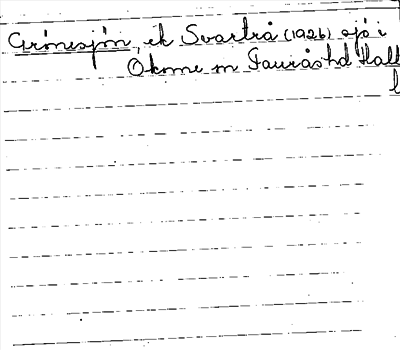 Grönesjön, ek Svartrå (1926) sjö i
Okome sn Fauråshd Hall
l